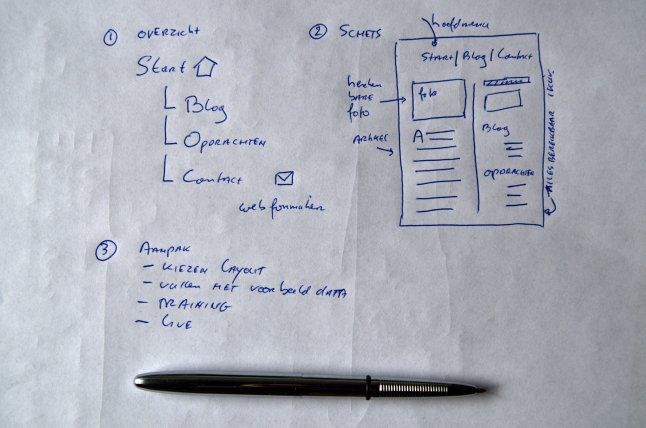 1 OVERZICHT
Start
Blog
OPDRACHTEN
Contact
webformulier
2 SCHETS
hoofdmenu
START/Blog/Contact
herken
bare
foto
foto
ARTIKEL
A
Blog
OPDRACHTEN
ALLES BEREIKBAAR 1 KLIK
3 AANPAK
- KIEZEN LAYOUT
- vullen MET voorbeeld DATA
- TRAINING
- LIVE